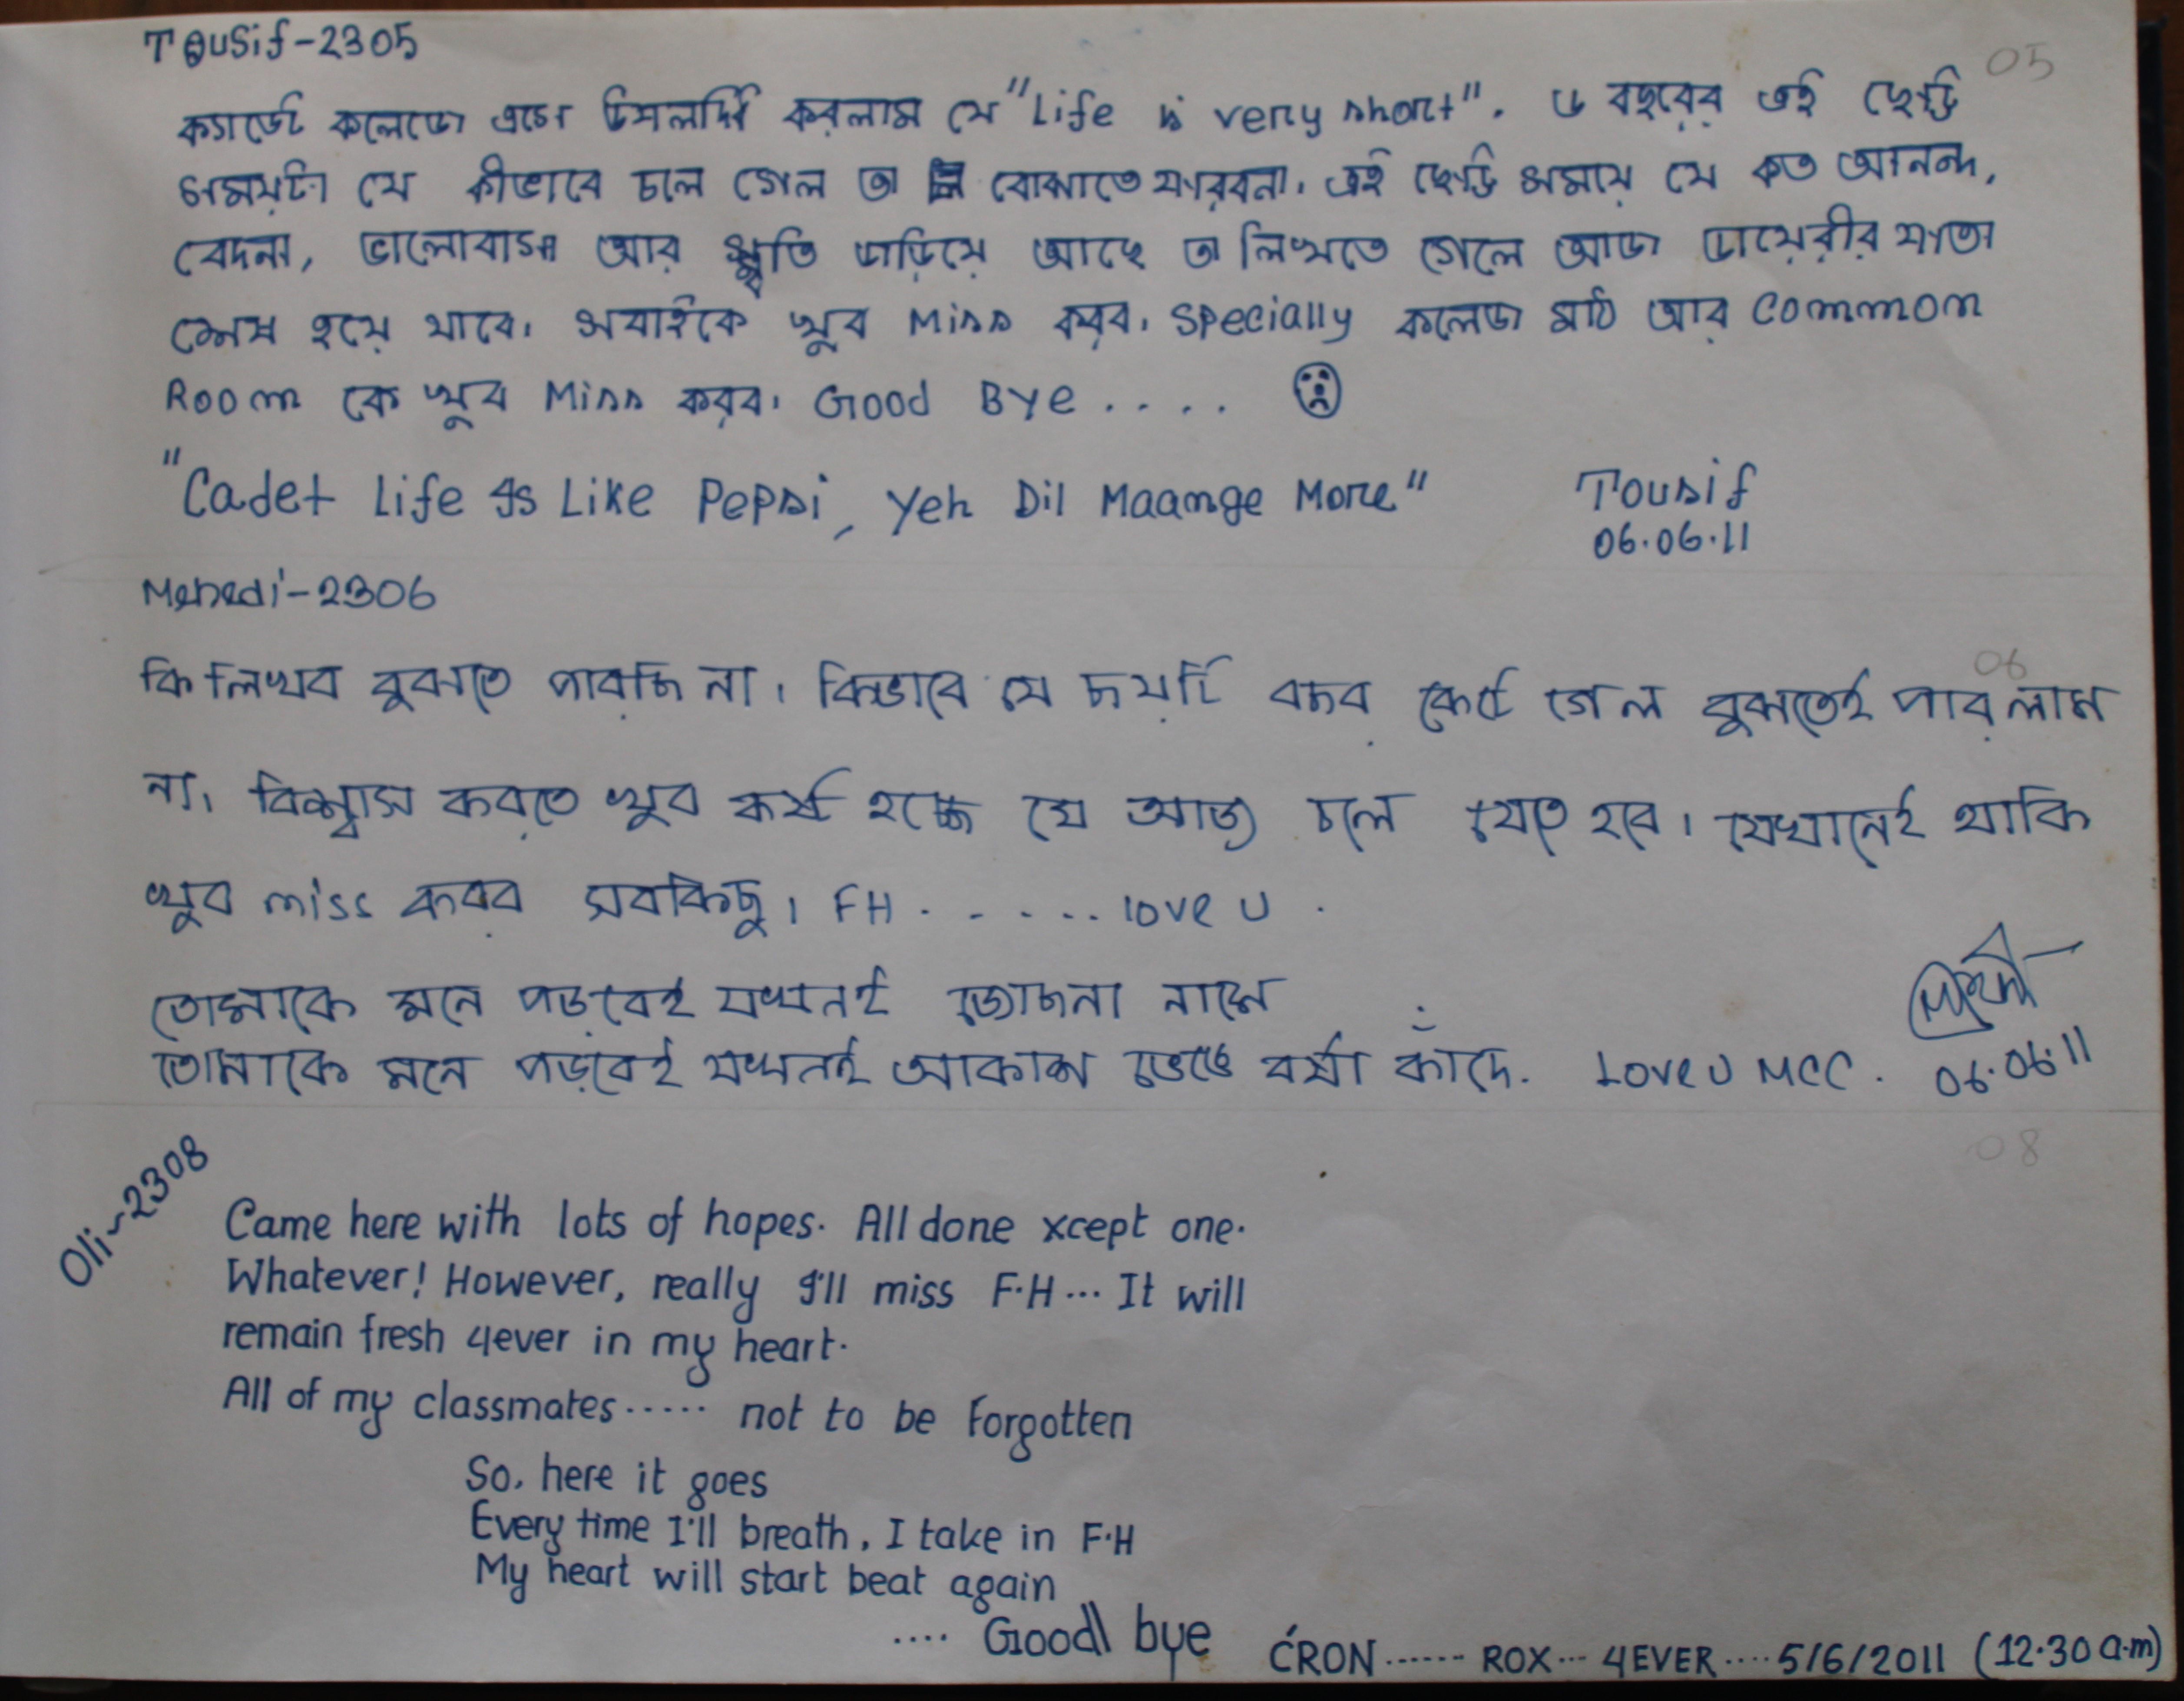 Tousif-2305
05
ক্যাডেট কলেজে এসে উপলব্ধি করলাম যে "Life is very short". ৬ বছরের এই ছোট্ট
সময়টা যে কীভাবে চলে গেল তা বোঝাতে পারবনা। এই ছোট্ট সময়ে যে কত আনন্দ,
বেদনা, ভালোবাসা আর স্মৃতি জড়িয়ে আছে তা লিখতে গেলে আজ ডায়েরীর পাতা
শেষ হয়ে যাবে। সবাইকে খুব Miss করব। Specially কলেজ মাঠ আর Common
Room কে খুব Miss করব। Good Bye ....
"Cadet Life Is Like Pepsi, Yeh Dil Maange More"
Tousif
06.06.11
Mehedi-2306
06
কি লিখব বুঝতে পারছি না। কিভাবে যে ছয়টি বছর কেটে গেল বুঝতেই পারলাম
না। বিশ্বাস করতে খুব কষ্ট হচ্ছে যে আজ চলে যেতে হবে। যেখানেই থাকি
খুব miss করব সবকিছু। FH ...... love U .
তোমাকে মনে পড়বেই যখনই জোছনা নামে
তোমাকে মনে পড়বেই যখনই আকাশ ভেঙে বর্ষা কাঁদে. Love U MCC.
06.06.11
Oli-2308
08
Came here with lots of hopes. All done xcept one.
Whatever! However, really I'll miss F.H... It will
remain fresh 4ever in my heart.
All of my classmates ..... not to be forgotten
So, here it goes
Every time I'll breath, I take in F.H
My heart will start beat again
.... Good bye
ĆRON ...... ROX ... 4EVER .... 5/6/2011 (12.30 a.m)